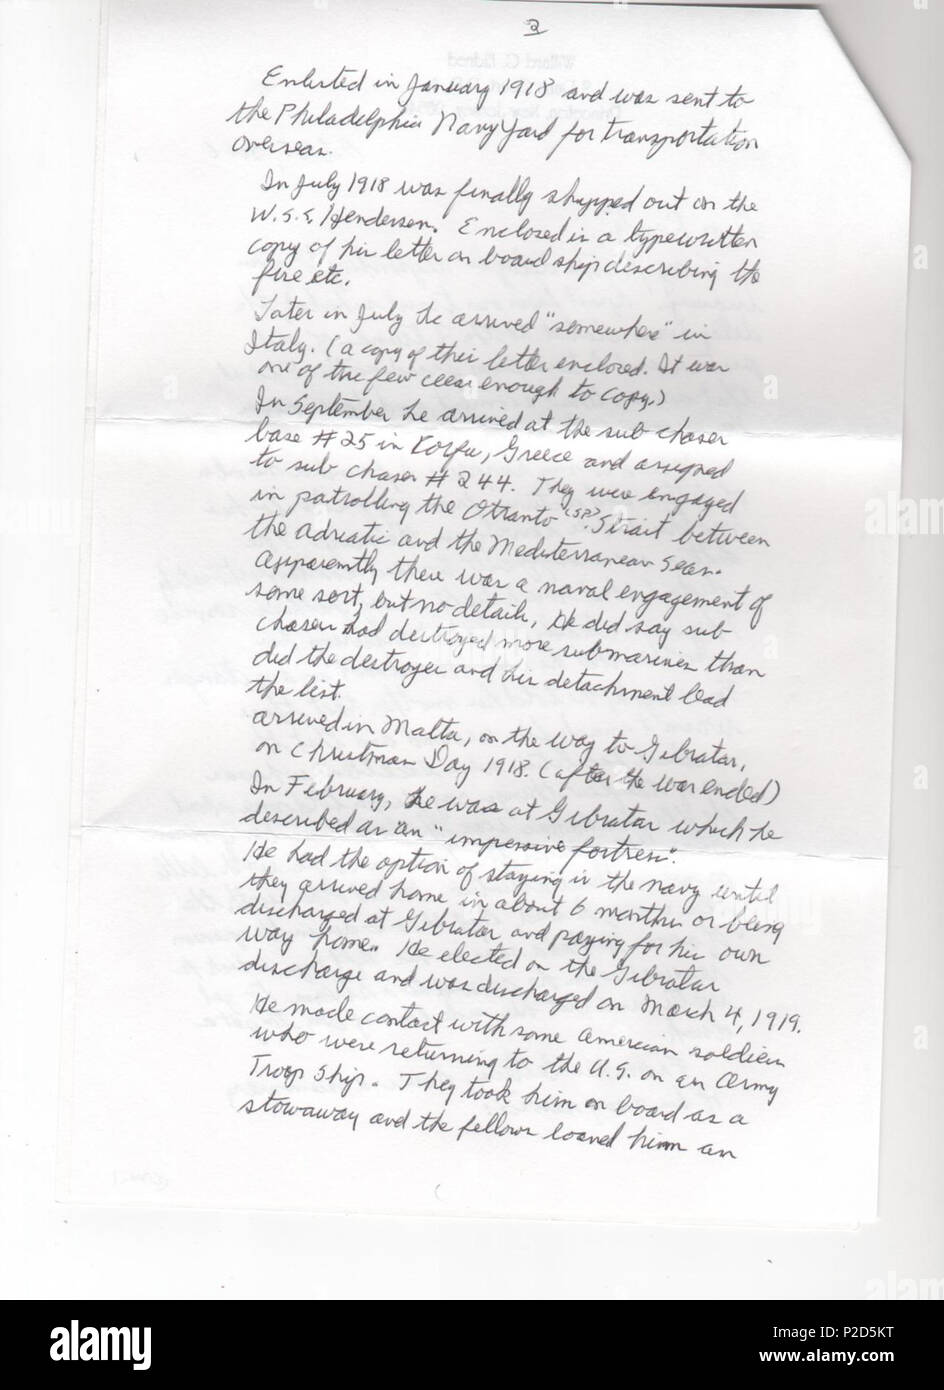 2
Enlisted in January 1918 and was sent to
the Philadelphia Navy Yard for transportation
overseas.
In July 1918 was finally shipped out on the
W.S.S. Henderson. Enclosed is a typewritten
copy of his letter on board ship describing the
fire etc.
Later in July he arrived "somewhere" in
Italy. (a copy of this letter enclosed. It was
one of the few clear enough to copy.)
In September he arrived at the sub chaser
base #25 in Korfu, Greece and assigned
to sub chaser #244. They were engaged
in patrolling the Otranto (SP?) Strait between
the Adriatic and the Mediterranean Seas.
Apparently there was a naval engagement of
some sort, but no details, He did say sub
chasers had destroyed more submarines than
did the destroyer and his detachment lead
the list.
Arrived in Malta, on the way to Gibratar,
on Christmas Day 1918. (after the war ended)
In February, he was at Gibratar which he
described as an "impressive fortress".
He had the option of staying in the navy until
they arrived home in about 6 months or being
discharged at Gibratar and paying for his own
way home. He elected on the Gibratar
discharge and was discharged on March 4, 1919.
He made contact with some American soldiers
who were returning to the U.S. on an Army
Troop Ship. They took him on board as a
stowaway and the fellows loaned him an
alamy
Image ID: P2D5KT
www.alamy.com